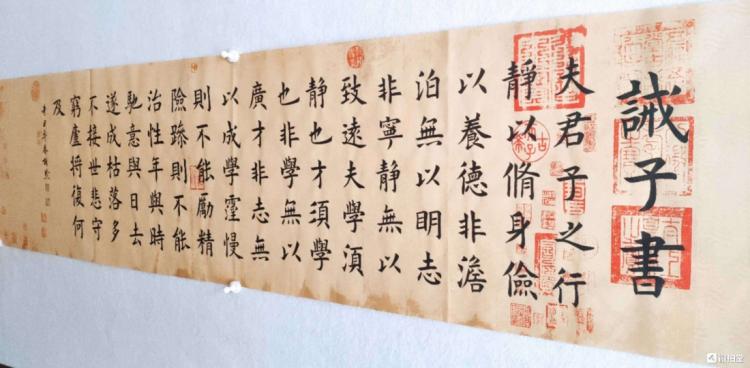 誡子書
夫君子之行
靜以脩身儉
以養德非澹
泊無以明志
非寧靜無以
致遠夫學湏
靜也才須學
也非學無以
廣才非志無
以成學霪慢
則不能勵精
險躁則不能
治性年與時
馳意與日去
遂成枯落多
不接世悲守
窮廬將復何
及